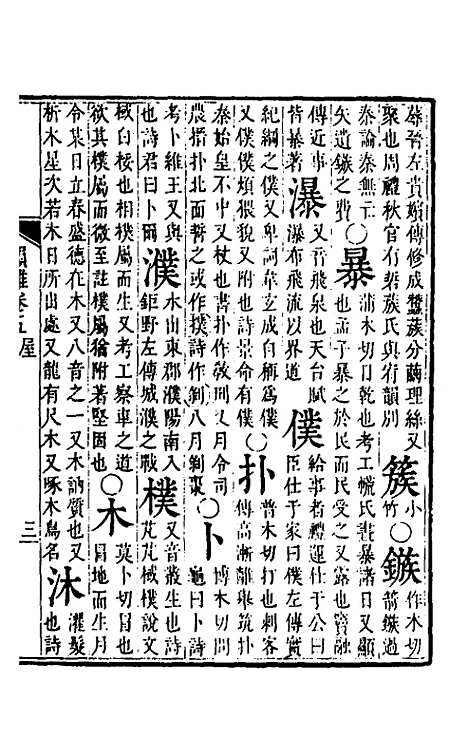 蔟晉左貴嬪傳修成蠶蔟分繭理絲又
聚也周禮秋官有硩蔟氏與術韻別
簇
小
竹○
鏃
作木切
箭鏃過
秦論秦無亡
矢遺鏃之費○
暴
蒲木切日乾也考工㡛氏晝暴諸日又顯
也孟子暴之於民而民受之又露也竇融
傳近事
皆暴著
瀑
又音飛泉也天台賦
瀑布飛流以界道
僕
給事者禮運仕于公曰
臣仕于家曰僕左傳實
紀綱之僕又卑詞韋玄成自稱爲僕
又僕僕煩猥貌又附也詩景命有僕○
扑
普木切打也刺客
傳高漸離舉筑扑
秦始皇不中又杖也書扑作敎刑又月令司
農搢扑北面誓之或作撲詩作剝八月剝棗○
卜
博木切問
龜曰卜詩
考卜維王又與
也詩君曰卜爾
濮
水出東郡濮陽南入
鉅野左傳城濮之戰
樸
又音叢生也詩
芃芃棫樸說文
棫白桵也相樸屬而生又考工察車之道
欲其樸屬而微至註樸屬猶附著堅固也○
木
莫卜切冒也
冒地而生月
令某日立春盛德在木又八音之一又木訥質也又
析木星次若木日所出處又龍有尺木又啄木鳥名
沐
濯髮
也詩
雅卷五 屋
三